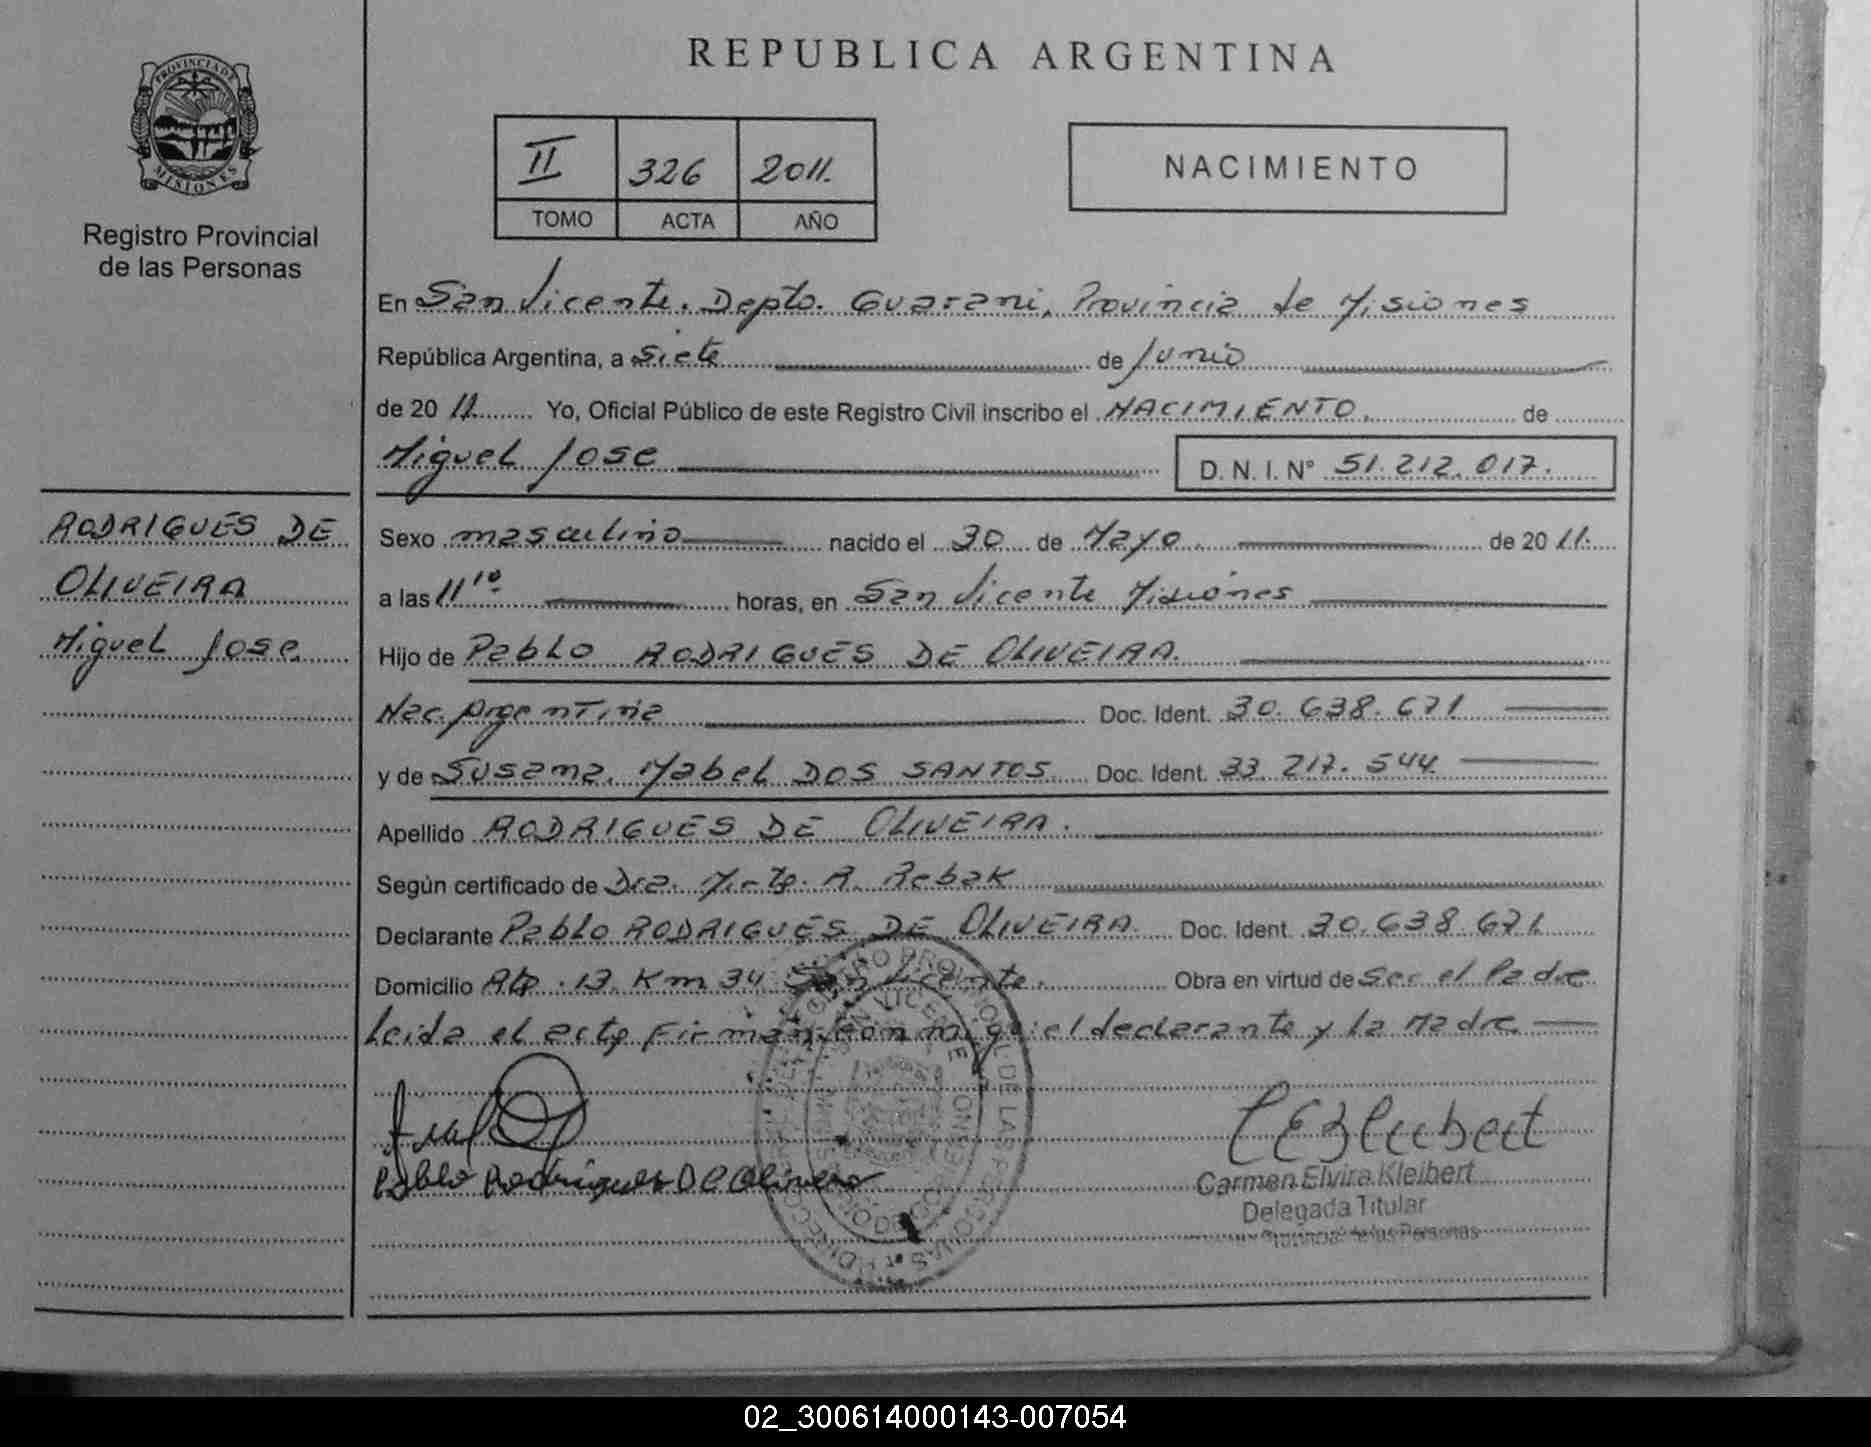 REPUBLICA ARGENTINA
PROVINCIA DE
MISIONES
Registro Provincial
de las Personas
II 326 2011.
TOMO ACTA AÑO
NACIMIENTO
En San Vicente. Depto. Guarani, Provincia de Misiones
República Argentina, a Siete de Junio
de 20 11 Yo, Oficial Público de este Registro Civil inscribo el NACIMIENTO. de
Miguel Jose D. N. I. N° 51.212.017.
RODRIGUES DE
OLIVEIRA
Miguel Jose
Sexo masculino nacido el 30 de Mayo. de 20 11.
a las 11 10. horas, en San Vicente Misiones
Hijo de Pablo RODRIGUES DE OLIVEIRA.
Nac. Argentina Doc. Ident. 30.638.671
y de Susana Mabel DOS SANTOS Doc. Ident. 33.217.544
Apellido RODRIGUES DE OLIVEIRA.
Según certificado de Dra. A. Rebak
Declarante Pablo RODRIGUES DE OLIVEIRA. Doc. Ident. 30.638.671
Domicilio Km 34 San Vicente. Obra en virtud de Ser el Padre
Leida el acta Firman conmigo el declarante y la Madre
Pablo Rodrigues De Olivera
CEKleibert
Carmen Elvira Kleibert
Delegada Titular
Provincial de las Personas
02_300614000143-007054